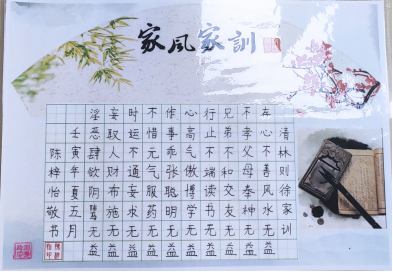 家风家訓
清林则徐家训
存心不善风水无益
不孝父母奉神无益
兄弟不和交友无益
行止不端读书无益
心高气傲博学无益
作事乖张聪明无益
不惜元气服药无益
时运不通妄求无益
妄取人财布施无益
淫恶肆欲阴骘无益
壬寅年夏五月
陈梓怡敬书